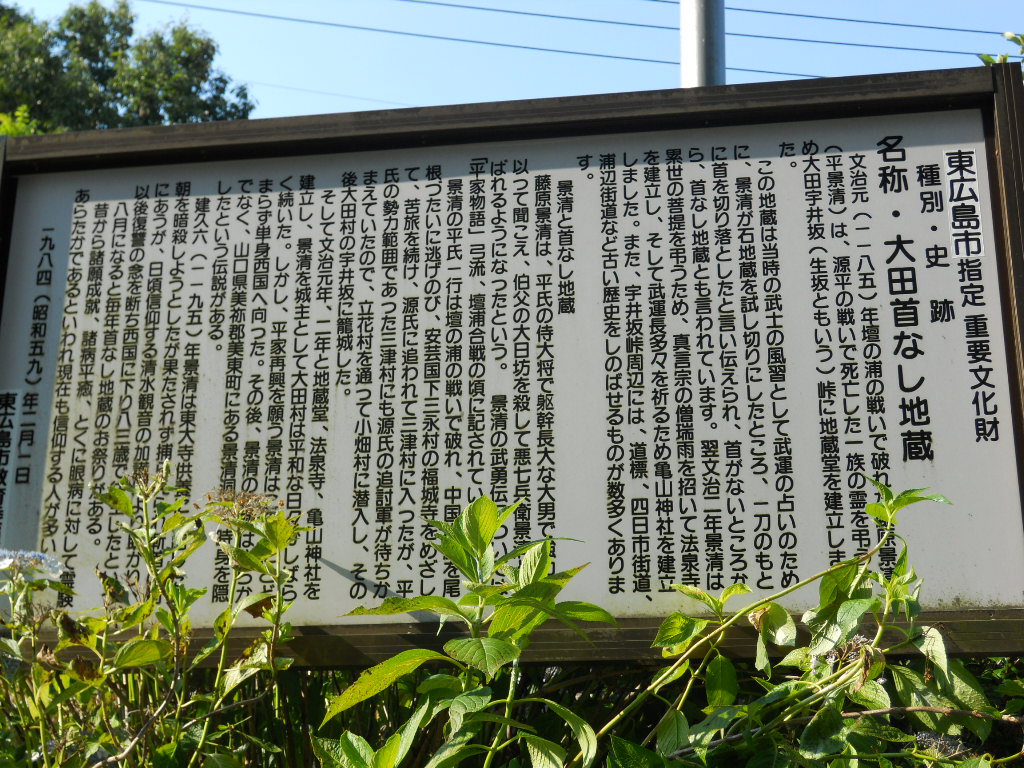 東広島市指定 重要文化財
種別・史 跡
名称・大田首なし地蔵
文治元（一一八五）年壇の浦の戦いで破れた
（平景清）は、源平の戦いで死亡した一族の霊を弔うた
め大田宇井坂（生坂ともいう）峠に地蔵堂を建立しまし
た。
この地蔵は当時の武士の風習として武運の占いのため
に、景清が石地蔵を試し切りにしたところ、一刀のもと
に首を切り落としたと言い伝えられ、首がないところか
ら、首なし地蔵とも言われています。翌文治二年景清は
累世の菩提を弔うため、真言宗の僧瑞雨を招いて法泉寺
を建立し、そして武運長多々を祈るため亀山神社を建立
しました。また、宇井坂峠周辺には、道標、四日市街道、
浦辺街道など古い歴史をしのばせるものが数多くありま
す。
景清と首なし地蔵
藤原景清は、平氏の侍大将で躯幹長大な大男で
以つて聞こえ、伯父の大日坊を殺して悪七兵衛景清
ばれるようになったという。 景清の武勇伝
「平家物語」弓流、壇浦合戦の頃に記されてい
景清の平氏一行は壇の浦の戦いで破れ、中国
根づたいに逃げのび、安芸国下三永村の福城寺をめざし
て、苦旅を続け、源氏に追われて三津村に入ったが、平
氏の勢力範囲であった三津村にも源氏の追討軍が待ちか
まえていたので、立花村を通って小畑村に潜入し、その
後大田村の宇井坂に籠城した。
そして文治元年、二年と地蔵堂、法泉寺、亀山神社を
建立し、景清を城主として大田村は平和な日
く続いた。しかし、平家再興を願う景清は
まらず単身西国へ向った。その後、景清
でなく、山口県美祢郡美東町にある景清洞
したという伝説がある。
建久六（一一九五）年景清は東大寺供養
朝を暗殺しようとしたが果たされず捕
にあうが、日頃信仰する清水観音の加
以後復讐の念を断ち西国に下り八三歳で
八月になると毎年首なし地蔵のお祭りがある。
昔から諸願成就、諸病平癒、とくに眼病に対して霊験
あらたかであるといわれ現在も信仰する人が多
一九八四（昭和五九）年二月一日
東広島市教育